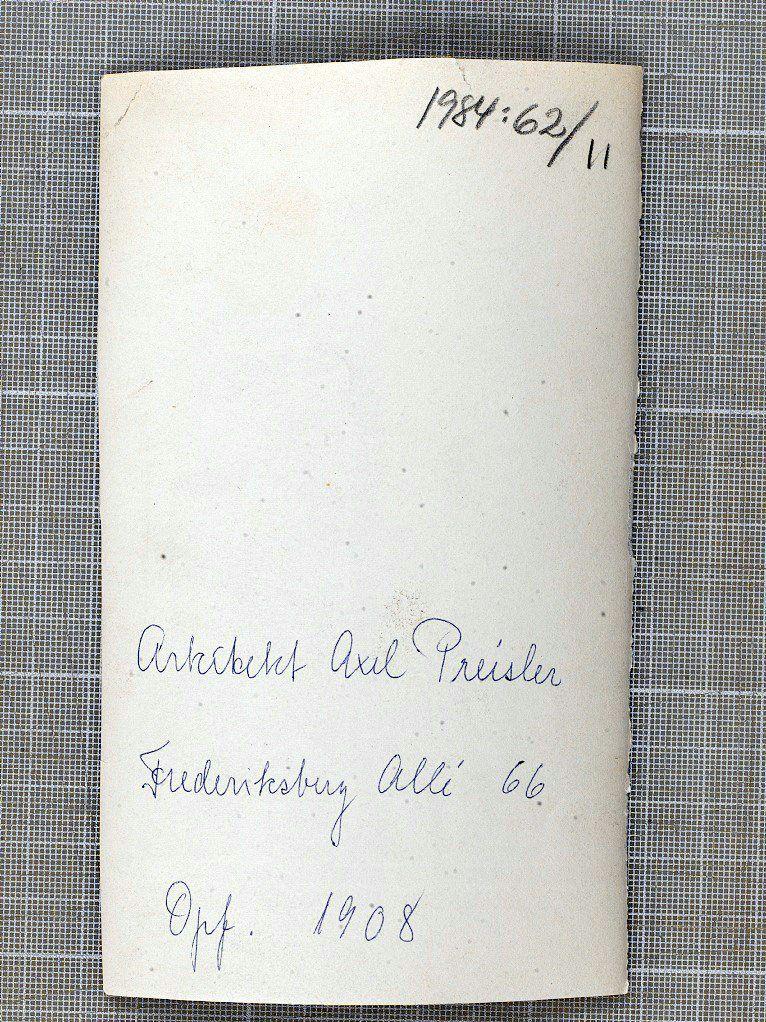 1984:62/11
Arkitekt Axel Preisler
Frederiksberg Allé 66
Opf. 1908